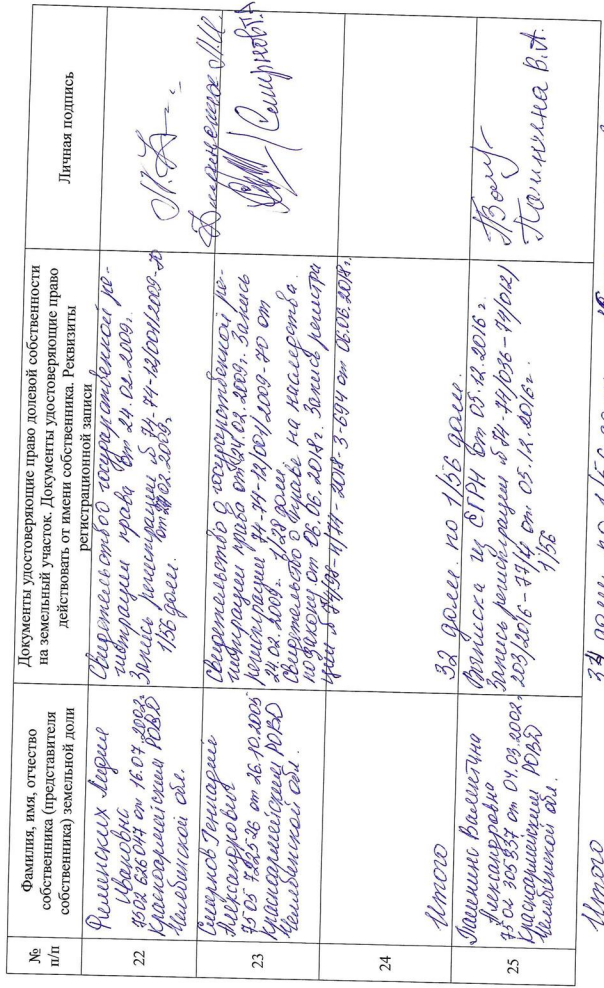 №
п/п
Фамилия, имя, отчество
собственника (представителя
собственника) земельной доли
Документы удостоверяющие право долевой собственности
на земельный участок. Документы удостоверяющие право
действовать от имени собственника. Реквизиты
регистрационной записи
Личная подпись
22
Лидия
Ивановна
7502 626047 от 16.07.2002г
Красноармейским РОВД
Челябинской обл.
Свидетельство о государственной ре-
гистрации права от 24.02.2009г.
Запись регистрации № 74-74-12/001/2009-70
от 24.02.2009,
1/56 доли.
23
Смирнов Геннадий
Александрович
7505 722526 от 26.10.2005
Красноармейским РОВД
Челябинской обл.
Свидетельство о государственной ре-
гистрации права от 24.02.2009г. Запись
регистрации 74-74-12/001/2009-70 от
24.02.2009г. 1/28 доли
свидетельство о праве на наследство
по закону от 06.06.2018г. Запись регистра
ции № 74/098-74/74-2018-3-694 от 06.06.2018г.
Смирнов Г.А
24
Итого
32 доли по 1/56 доли.
25
Валентина
Александровна
7502 305837 от 04.03.2002г
Красноармейским РОВД
Челябинской обл.
Выписка из ЕГРН от 05.12.2016 г.
Запись регистрации № 74-74/036-74/012/
203/2016-77/4 от 05.12.2016г.
1/56
В.А.
Итого